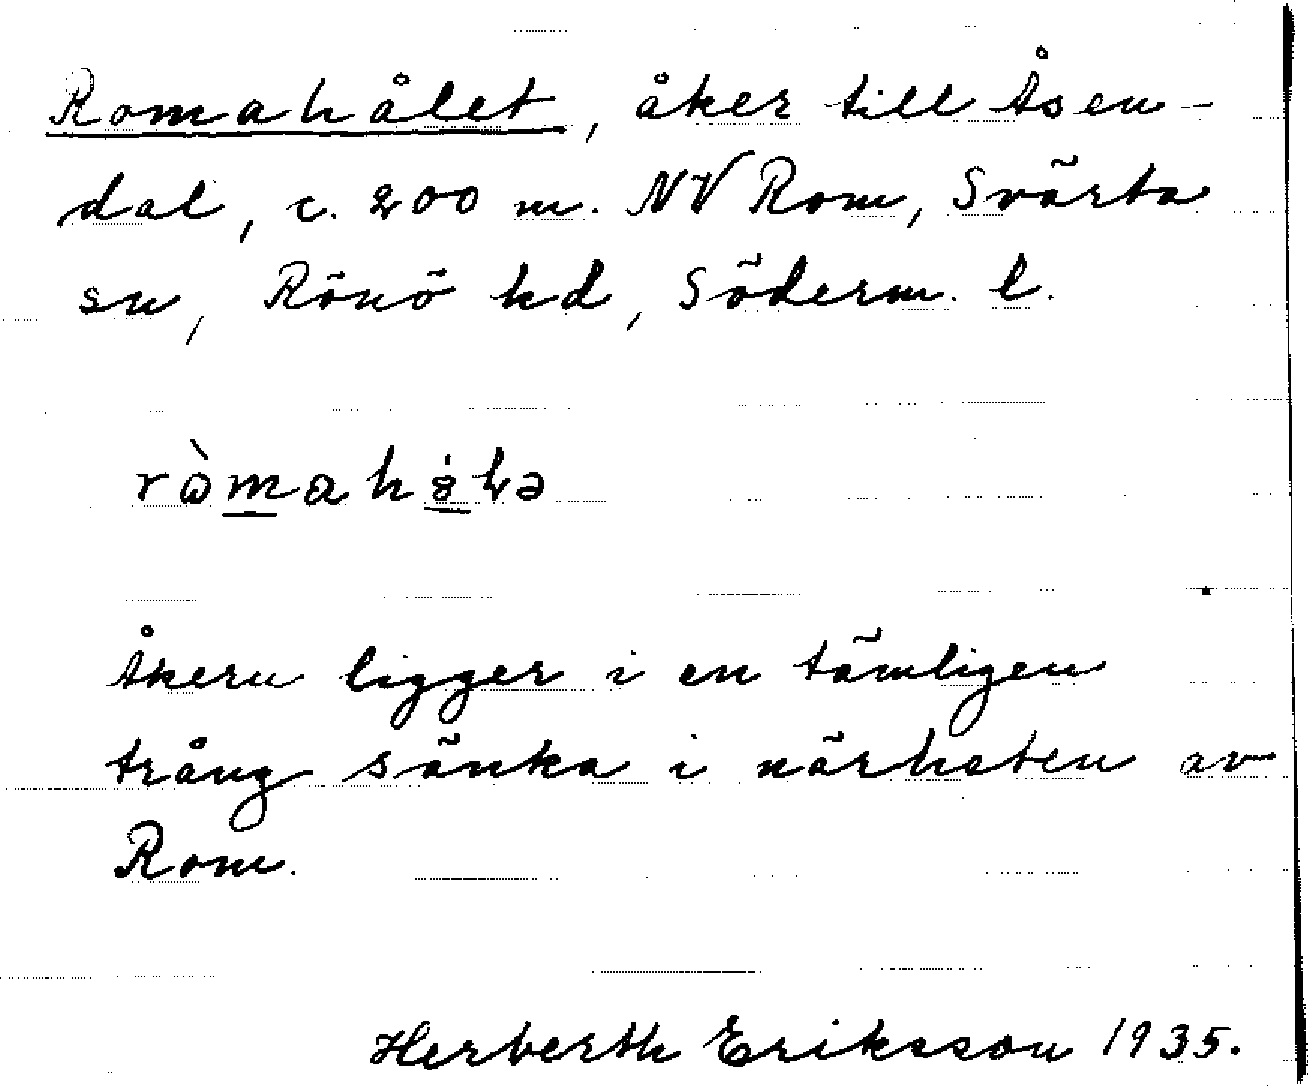 Romahålet, åker till Åsen-
dal, c. 200 m. NV Rom, Svärta
sn, Rönö hd, Söderm. l.
Åkern ligger i en tämligen
trång sänka i närheten av
Rom.
Herberth Eriksson 1935.